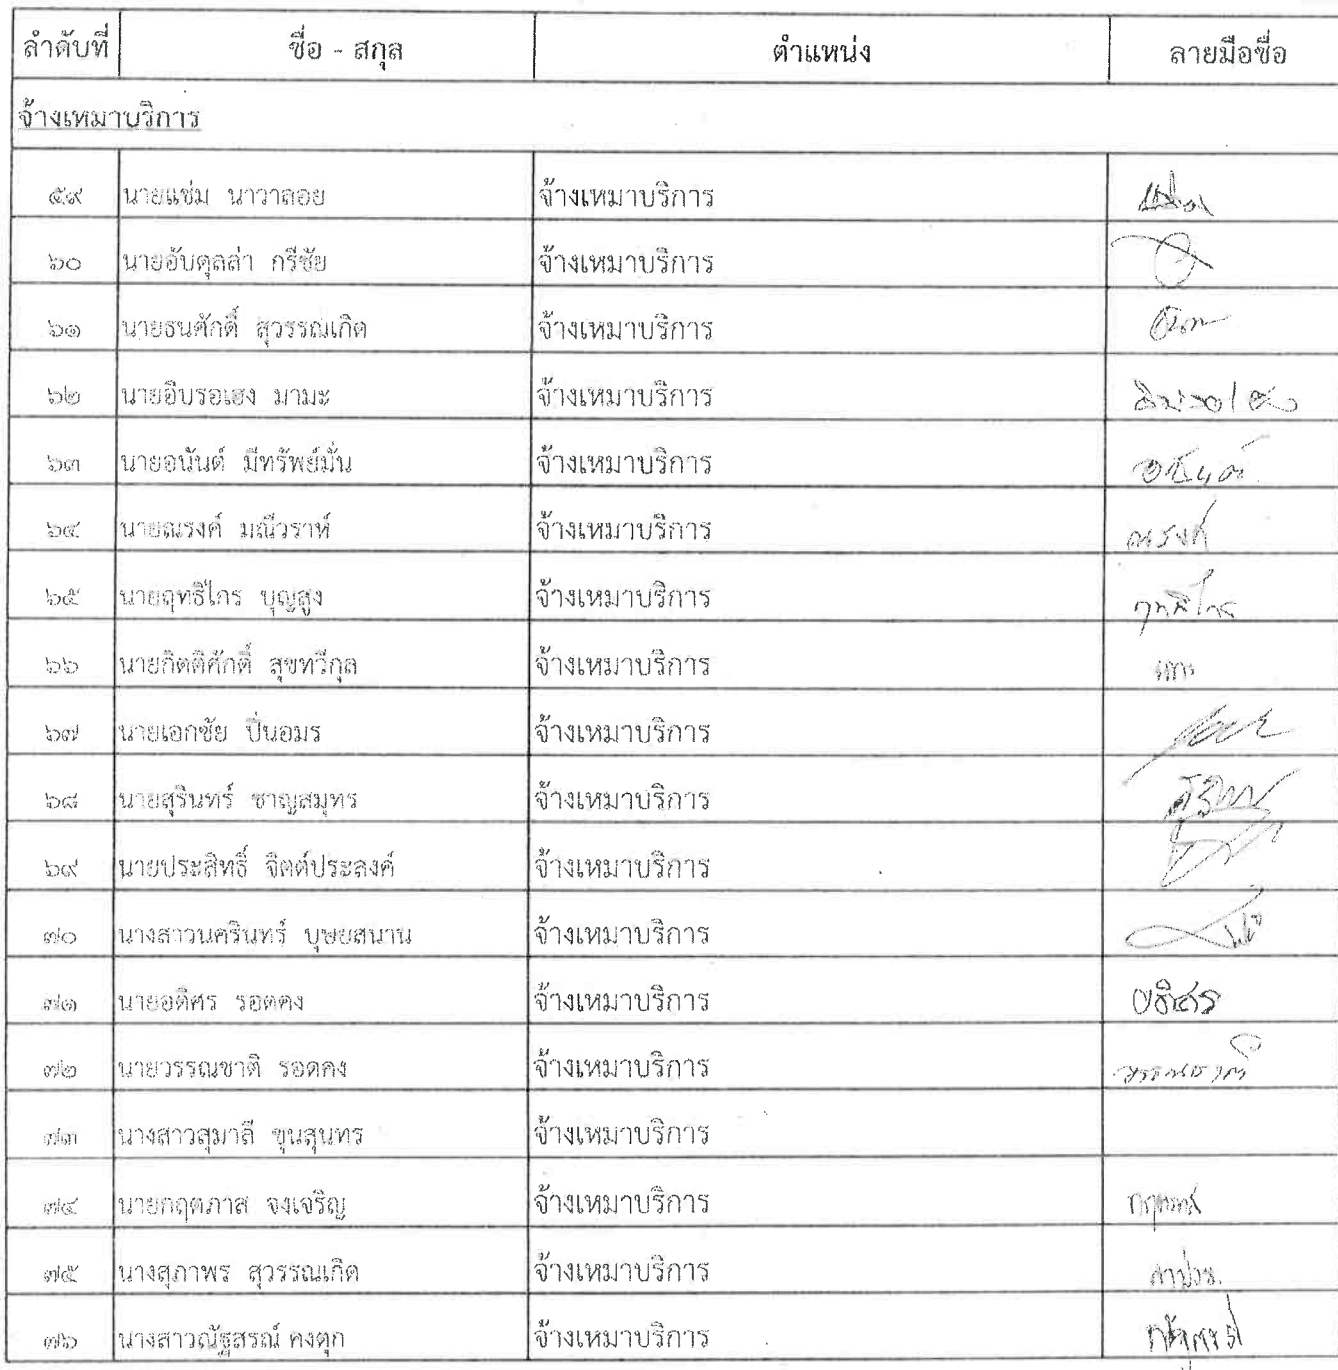 ลำดับที่ ชื่อ - สกุล ตำแหน่ง ลายมือชื่อ
จ้างเหมาบริการ
๕๙ นายแช่ม นาวาลอย จ้างเหมาบริการ
๖๐ นายอับดุลล่า กรีชัย จ้างเหมาบริการ
๖๑ นายธนศักดิ์ สุวรรณเกิด จ้างเหมาบริการ
๖๒ นายอิบรอเฮง มามะ จ้างเหมาบริการ
๖๓ นายอนันต์ มีทรัพย์มั่น จ้างเหมาบริการ อนันต์
๖๔ นายณรงค์ มณีวราห์ จ้างเหมาบริการ ณรงค์
๖๕ นายฤทธิไกร บุญสูง จ้างเหมาบริการ ฤทธิไกร
๖๖ นายกิตติศักดิ์ สุขทวีกุล จ้างเหมาบริการ
๖๗ นายเอกชัย ปิ่นอมร จ้างเหมาบริการ
๖๘ นายสุรินทร์ ชาญสมุทร จ้างเหมาบริการ
๖๙ นายประสิทธิ์ จิตต์ประสงค์ จ้างเหมาบริการ
๗๐ นางสาวนครินทร์ บุษยสนาน จ้างเหมาบริการ
๗๑ นายอดิศร รอดคง จ้างเหมาบริการ
๗๒ นายวรรณชาติ รอดคง จ้างเหมาบริการ วรรณชาติ
๗๓ นางสาวสุมาลี ขุนสุนทร จ้างเหมาบริการ
๗๔ นายกฤตภาส จงเจริญ จ้างเหมาบริการ
๗๕ นางสุภาพร สุวรรณเกิด จ้างเหมาบริการ
๗๖ นางสาวณัฐสรณ์ คงตุก จ้างเหมาบริการ